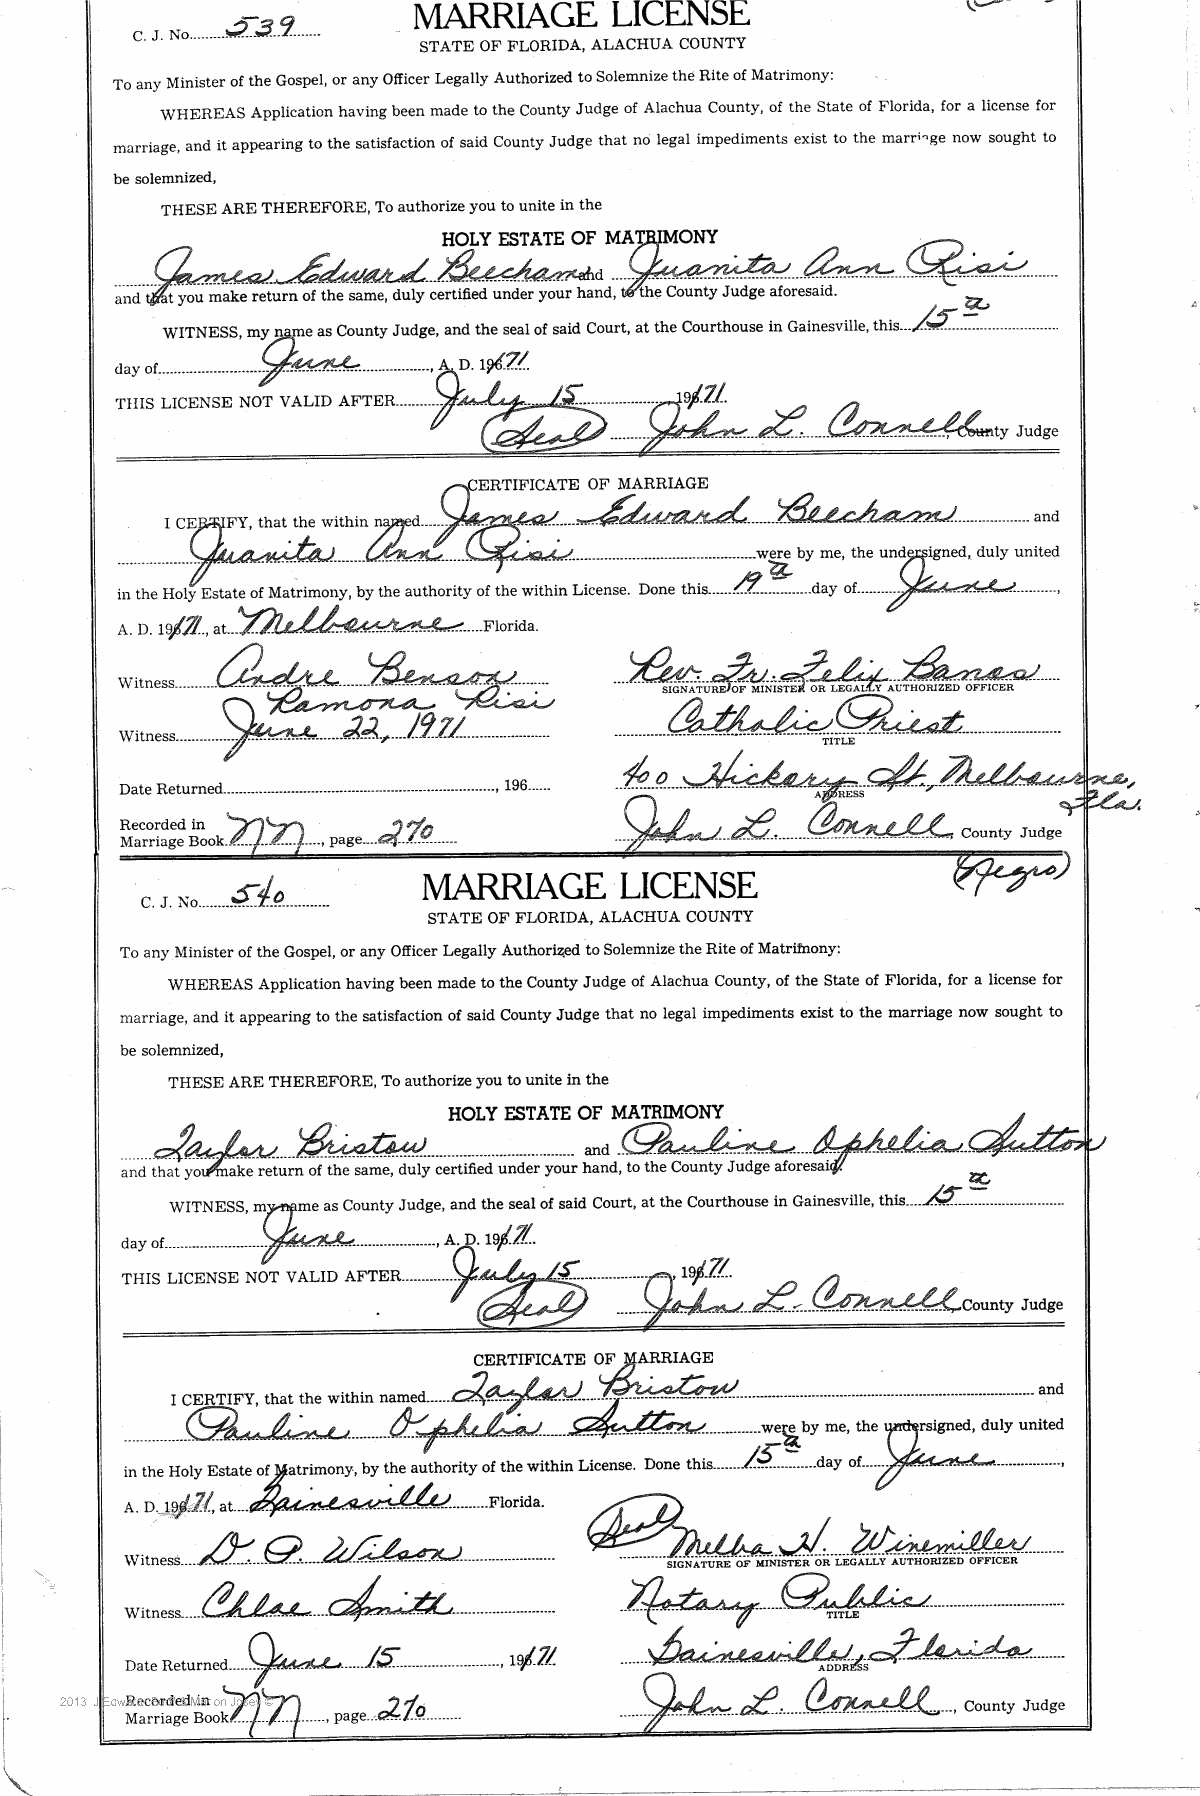 C. J. No. 539
MARRIAGE LICENSE
STATE OF FLORIDA, ALACHUA COUNTY
To any Minister of the Gospel, or any Officer Legally Authorized to Solemnize the Rite of Matrimony:
WHEREAS Application having been made to the County Judge of Alachua County, of the State of Florida, for a license for
marriage, and it appearing to the satisfaction of said County Judge that no legal impediments exist to the marriage now sought to
be solemnized,
THESE ARE THEREFORE, To authorize you to unite in the
HOLY ESTATE OF MATRIMONY
James Edward Beecham and Juanita Ann Risi
and that you make return of the same, duly certified under your hand, to the County Judge aforesaid.
WITNESS, my name as County Judge, and the seal of said Court, at the Courthouse in Gainesville, this 15th
day of June, A. D. 19671
THIS LICENSE NOT VALID AFTER July 15 19671
(Seal) John L. Connell, County Judge
CERTIFICATE OF MARRIAGE
I CERTIFY, that the within named James Edward Beecham and
Juanita Ann Risi were by me, the undersigned, duly united
in the Holy Estate of Matrimony, by the authority of the within License. Done this 19th day of June,
A. D. 19671, at Melbourne Florida.
Witness Andre Benson Rev. Fr. Felix
SIGNATURE OF MINISTER OR LEGALLY AUTHORIZED OFFICER
Ramona Risi
Witness June 22, 1971 Catholic Priest
TITLE
Date Returned, 196 400 Hickory St., Melbourne, Fla.
ADDRESS
Recorded in
Marriage Book NN, page 270 John L. Connell County Judge
(Negro)
C. J. No. 540
MARRIAGE LICENSE
STATE OF FLORIDA, ALACHUA COUNTY
To any Minister of the Gospel, or any Officer Legally Authorized to Solemnize the Rite of Matrimony:
WHEREAS Application having been made to the County Judge of Alachua County, of the State of Florida, for a license for
marriage, and it appearing to the satisfaction of said County Judge that no legal impediments exist to the marriage now sought to
be solemnized,
THESE ARE THEREFORE, To authorize you to unite in the
HOLY ESTATE OF MATRIMONY
Taylor Bristow and Pauline Ophelia Sutton
and that you make return of the same, duly certified under your hand, to the County Judge aforesaid.
WITNESS, my name as County Judge, and the seal of said Court, at the Courthouse in Gainesville, this 15th
day of June, A. D. 19671
THIS LICENSE NOT VALID AFTER July 15, 19671
(Seal) John L. Connell County Judge
CERTIFICATE OF MARRIAGE
I CERTIFY, that the within named Taylor Bristow and
Pauline Ophelia Sutton were by me, the undersigned, duly united
in the Holy Estate of Matrimony, by the authority of the within License. Done this 15th day of June,
A. D. 19671, at Gainesville Florida.
Witness D. P. Wilson (Seal) Melba H. Winemiller
SIGNATURE OF MINISTER OR LEGALLY AUTHORIZED OFFICER
Witness Chloe Smith Notary Public
TITLE
Date Returned June 15, 19671 Gainesville, Florida
ADDRESS
Recorded in
Marriage Book NN, page 270 John L. Connell, County Judge
2013